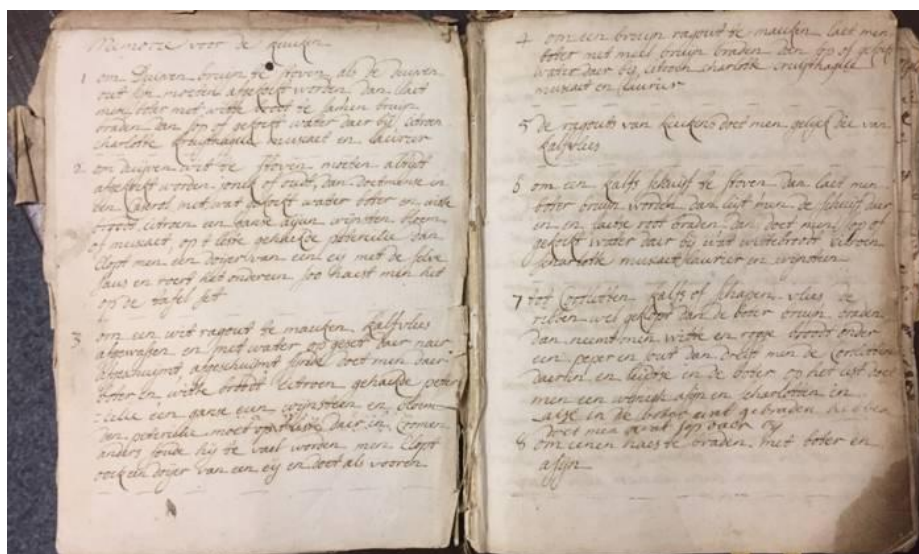 Memorie voor de keuken
1 om Duijven bruijn te stoven als de duijven
out sijn moeten afgekockt worden dan laet
men boter met witte broot te samen bruijn
braden dan sop of gekockt water daer bij citroen
charlotte kruijthagele muscaet en laurier
2 om duijven wit te stoven moeten altijt
afgekockt worden jonck of oudt, dan doetmense in
een met wat gekockt water boter en witte
broodt citroen en ganse aijun wijnsten bloem
of muscaet, op t leste gehackte petercilie dan
clopt men een doijer van een eij met de selve
saus en roert het ondereen soo haest men het
op de tafel set
3 om een wit ragout te maucken kalfvlies
afgewassen en met water op geset daer naer
afgeschuijmt sijnde doet men daer
boter en witte broodt citroen gehackte peter
-cilie een ganse eun wijnsteen en bloem
den petercilie moet op t leste daer in coomen
anders soude hij te vael worden men clopt
oock een doijer van een eij en doet als vooren
4 om een bruijn ragout te maucken laet men
boter met meel bruijn braden dan sop of gekockt
water daer bij citroen charlotte cruijthagele
muscaet en laurier
5 de ragouts van kieckens doet men gelijck die van
kalfvlies
6 om een kalfs schuijf te stoven dan laet men
boter bruijn worden dan leijt men de schuijf daer
in en laetse root braden dan doet men sop of
gekockt water daer bij wat wittebroodt citroen
scharlotte muscaet laurier en wijnsteen
7 tot Cottletten kalfs of schapen vlies de
ribben wel geclopt dan de boter bruijn braden
dan neemt men witte en rogge broodt onder
een peper en sout dan men de
daer in en leijtse in de boter op het lest doet
men een wijnigh asijn en scharlotten in
alse in de boter gebraden hebben
doet men wat sop daer bij
8 om eenen haes te braden met boter en
asijn